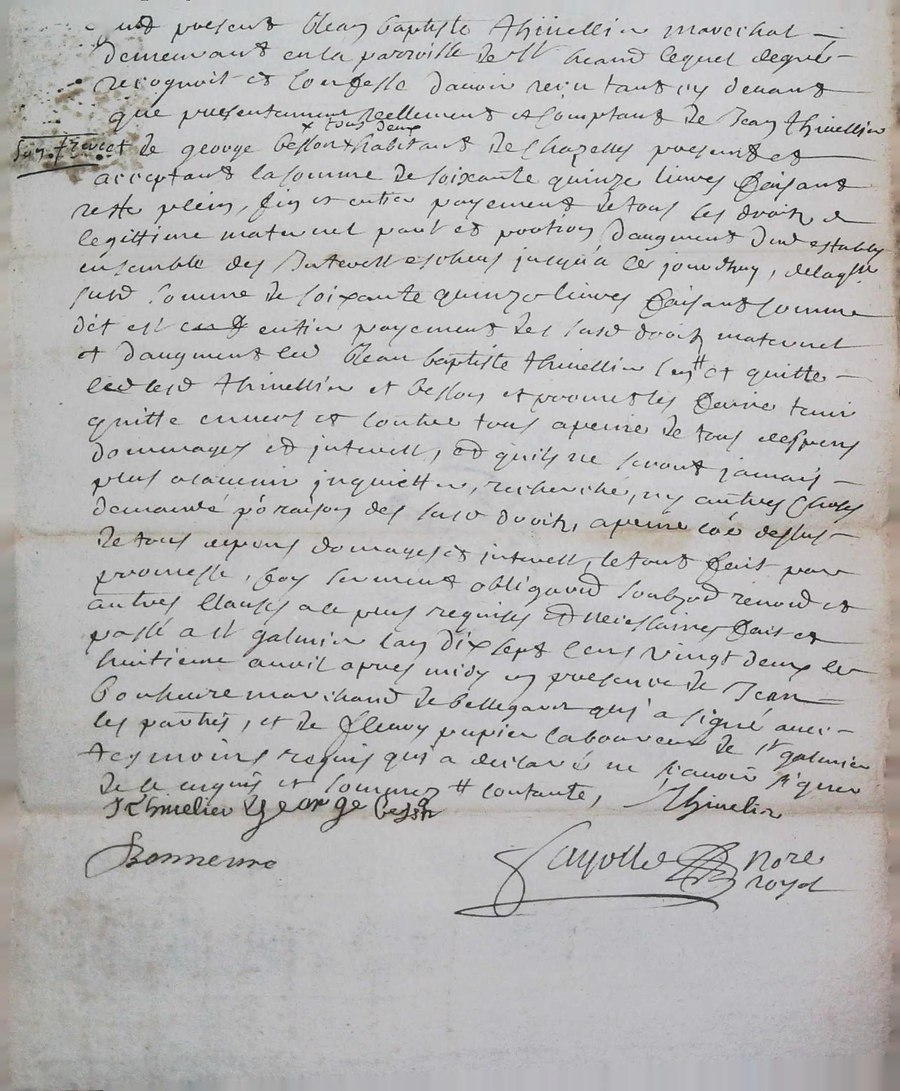 present Jean baptiste thivellier marechal
demeurant en la parroisse de St heand lequel degré
recognoit et confesse davoir receu tant cy devant
que presentement reellement et comptant de Jean thivellier
son frere et de george besson x habitant de Chazelles presents et
x tous deux
acceptant la somme de soixante quinze livres faisant
reste plein, fin et entier payement de tous les droits de
legittime maternel part et portion daugment
ensemble des Interest eschus jusqu'à ce jourdhuy, de laqlle
susd somme de soixante quinze livres faisant comme
dit est entier payement des susd droits maternel
et daugment led Jean baptiste thivellier et quitte
lesd thivellier et besson et promet les faire tenir
quitte envers et contre tous a peine de tous despens
dommages et interest, et quils ne seront jamais
plus a ladvenir inquiettes, recherché, ny autres choses
demandé p raison des susd droits, a peine dessus
de tous depens domages et interest, le tout fait par
promesse, foy serment obligaond soubzon renond et
autres clauses a ce plus requises et necessaires fait et
passé a St galmier lan dix sept cens vingt deux le
huitieme avril apres midy en presence de Jean
bonheure marchand de bellegarde qui a signé avec
les parties, et de fleury papier laboureur de St galmier
tesmoins requis qui a declaré ne scavoir signer
de ce enquis et sommez contante, Thivelier
J Thivelier George besson
Bonneure
Fayolle Nore
royal